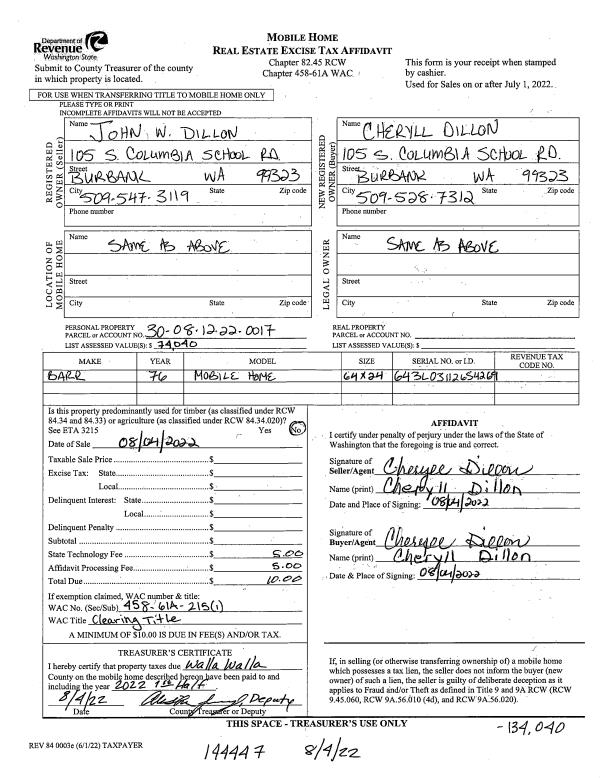 Department of
Revenue
Washington State
Submit to County Treasurer of the county
in which property is located.
MOBILE HOME
REAL ESTATE EXCISE TAX AFFIDAVIT
Chapter 82.45 RCW
Chapter 458-61A WAC
This form is your receipt when stamped
by cashier.
Used for Sales on or after July 1, 2022.
FOR USE WHEN TRANSFERRING TITLE TO MOBILE HOME ONLY
PLEASE TYPE OR PRINT
INCOMPLETE AFFIDAVITS WILL NOT BE ACCEPTED
REGISTERED
OWNER (Seller)
Name JOHN W. DILLON
105 S. COLUMBIA SCHOOL RD.
Street BURBANK WA 99323
City State Zip code
509-547-3119
Phone number
NEW REGISTERED
OWNER (Buyer)
Name CHERYLL DILLON
105 S. COLUMBIA SCHOOL RD.
Street BURBANK WA 99323
City State Zip code
509-528-7312
Phone number
LOCATION OF
MOBILE HOME
Name SAME AS ABOVE
Street
City State Zip code
LEGAL OWNER
Name SAME AS ABOVE
Street
City State Zip code
PERSONAL PROPERTY
PARCEL or ACCOUNT NO. 30-08-12-22-0017
LIST ASSESSED VALUE(S): $ 74,040
REAL PROPERTY
PARCEL or ACCOUNT NO.
LIST ASSESSED VALUE(S): $
MAKE YEAR MODEL SIZE SERIAL NO. or I.D. REVENUE TAX CODE NO.
BARR 76 MOBILE HOME 64X24 643L03112654269
Is this property predominantly used for timber (as classified under RCW
84.34 and 84.33) or agriculture (as classified under RCW 84.34.020)?
See ETA 3215 Yes No
Date of Sale 08/04/2022
Taxable Sale Price $
Excise Tax: State $
Local $
Delinquent Interest: State $
Local $
Delinquent Penalty $
Subtotal $
State Technology Fee $ 5.00
Affidavit Processing Fee $ 5.00
Total Due $ 10.00
If exemption claimed, WAC number & title:
WAC No. (Sec/Sub) 458-61A-215(1)
WAC Title Clearing Title
A MINIMUM OF $10.00 IS DUE IN FEE(S) AND/OR TAX.
AFFIDAVIT
I certify under penalty of perjury under the laws of the State of
Washington that the foregoing is true and correct.
Signature of
Seller/Agent Cheryll Dillon
Name (print) Cheryll Dillon
Date and Place of Signing: 08/04/2022
Signature of
Buyer/Agent Cheryll Dillon
Name (print) Cheryll Dillon
Date & Place of Signing: 08/04/2022
TREASURER'S CERTIFICATE
I hereby certify that property taxes due Walla Walla
County on the mobile home described hereon have been paid to and
including the year 2022 1st Half.
8/4/22 Deputy
Date County Treasurer or Deputy
If, in selling (or otherwise transferring ownership of) a mobile home
which possesses a tax lien, the seller does not inform the buyer (new
owner) of such a lien, the seller is guilty of deliberate deception as it
applies to Fraud and/or Theft as defined in Title 9 and 9A RCW (RCW
9.45.060, RCW 9A.56.010 (4d), and RCW 9A.56.020).
THIS SPACE - TREASURER'S USE ONLY
-134,040
REV 84 0003e (6/1/22) TAXPAYER
144447 8/4/22